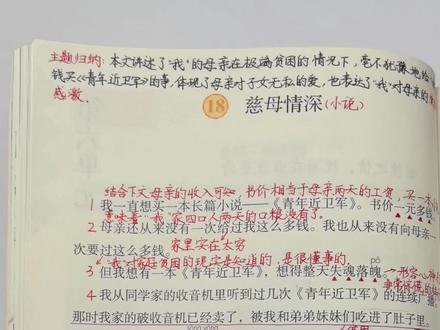 主题归纳:本文讲述了"我"的母亲在极端贫困的情况下,毫不犹豫地给
钱买《青年近卫军》的事,体现了母亲对子女无私的爱,也表达了"我"对母亲的
感激.
18 慈母情深(小说)
结合下文母亲的收入可知,书价相当于母亲两天的工资,买一本
1 我一直想买一本长篇小说——《青年近卫军》。书价一元多钱。
意味着"我"家四口人两天的口粮没有了。
2 母亲还从来没有一次给过我这么多钱。我也从来没有向母亲一
次要过这么多钱。家里实在太穷
"我"对家庭贫困的现实是知道的,是很懂事的。
pò
3 但我想有一本《青年近卫军》,想得整天失魂落魄。
形容心神
非常
4 我从同学家的收音机里听到过几次《青年近卫军》的连续广播。
那时我家的破收音机已经卖了,被我和弟弟妹妹们吃进了肚子里。